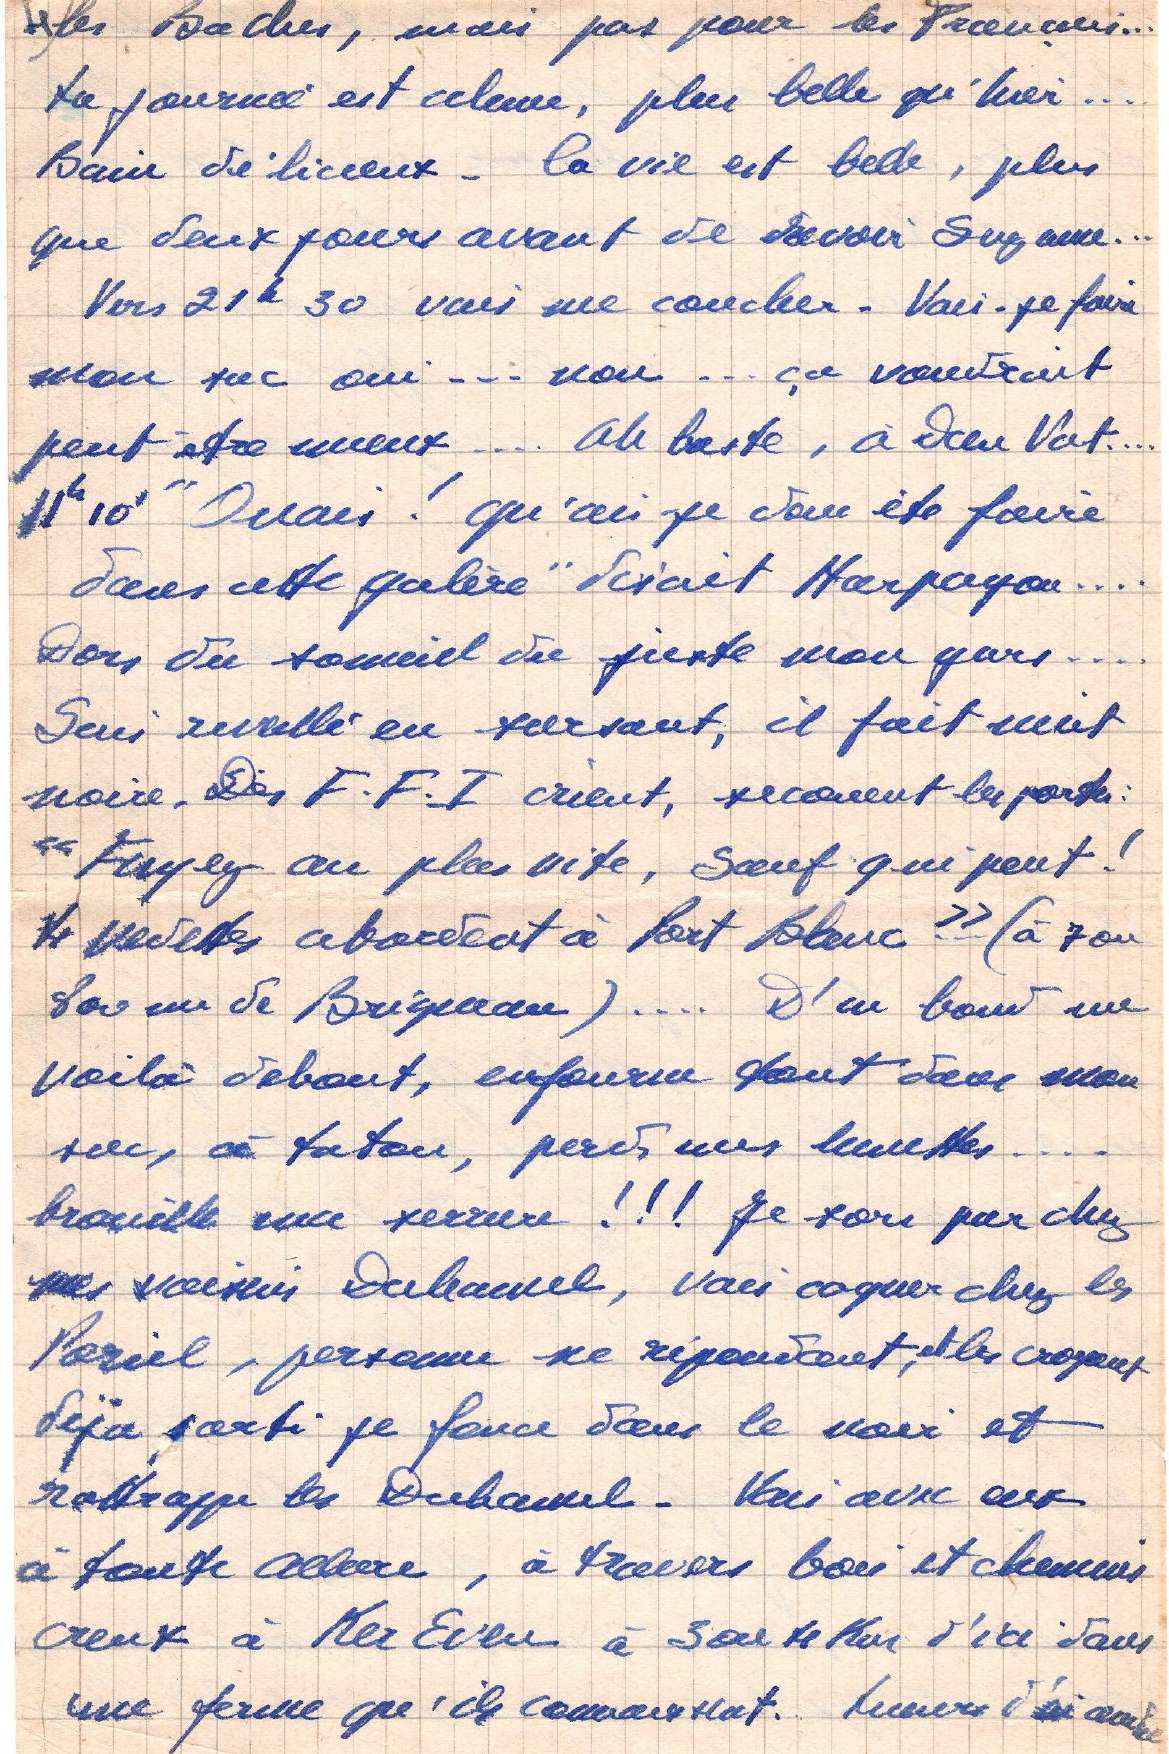 les Boches, mais pas pour les Français...
La journée est calme, plus belle qu'hier....
Bain délicieux - la vie est belle, plus
que deux jours avant de revoir Suzanne...
Vers 21h 30 vais me coucher - Vais-je faire
mon sac oui --- non --- ça vaudrait
peut être mieux .... Ah baste, à Dieu Vat....
11h 10' " Ouais ! qu'ai-je donc été faire
dans cette galère" disait Harpagon....
Dors du sommeil du juste mon gars....
Suis réveillé en sursaut, il fait nuit
noire. Des F.F.I crient, secouent les portes:
"Fuyez au plus vite, Sauf qui peut !
vedettes abordent à Port Blanc" (à 7 ou
800 m de Brigneau).... D'un bond me
voilà debout, enfourne tout dans mon
sac, à taton, perds mes lunettes....
brouille ma serrure !!! Je sors par chez
mes voisins Duhamel, vais cogner chez les
Poriel, personne ne répondant, et les croyant
déjà sorti je fonce dans le noir et
rattrappe les Duhamel - Vais avec eux
à toute allure, à travers bois et chemins
creux à Ker Even à 3 ou 4 Km d'ici dans
une ferme qu'ils connaissent.